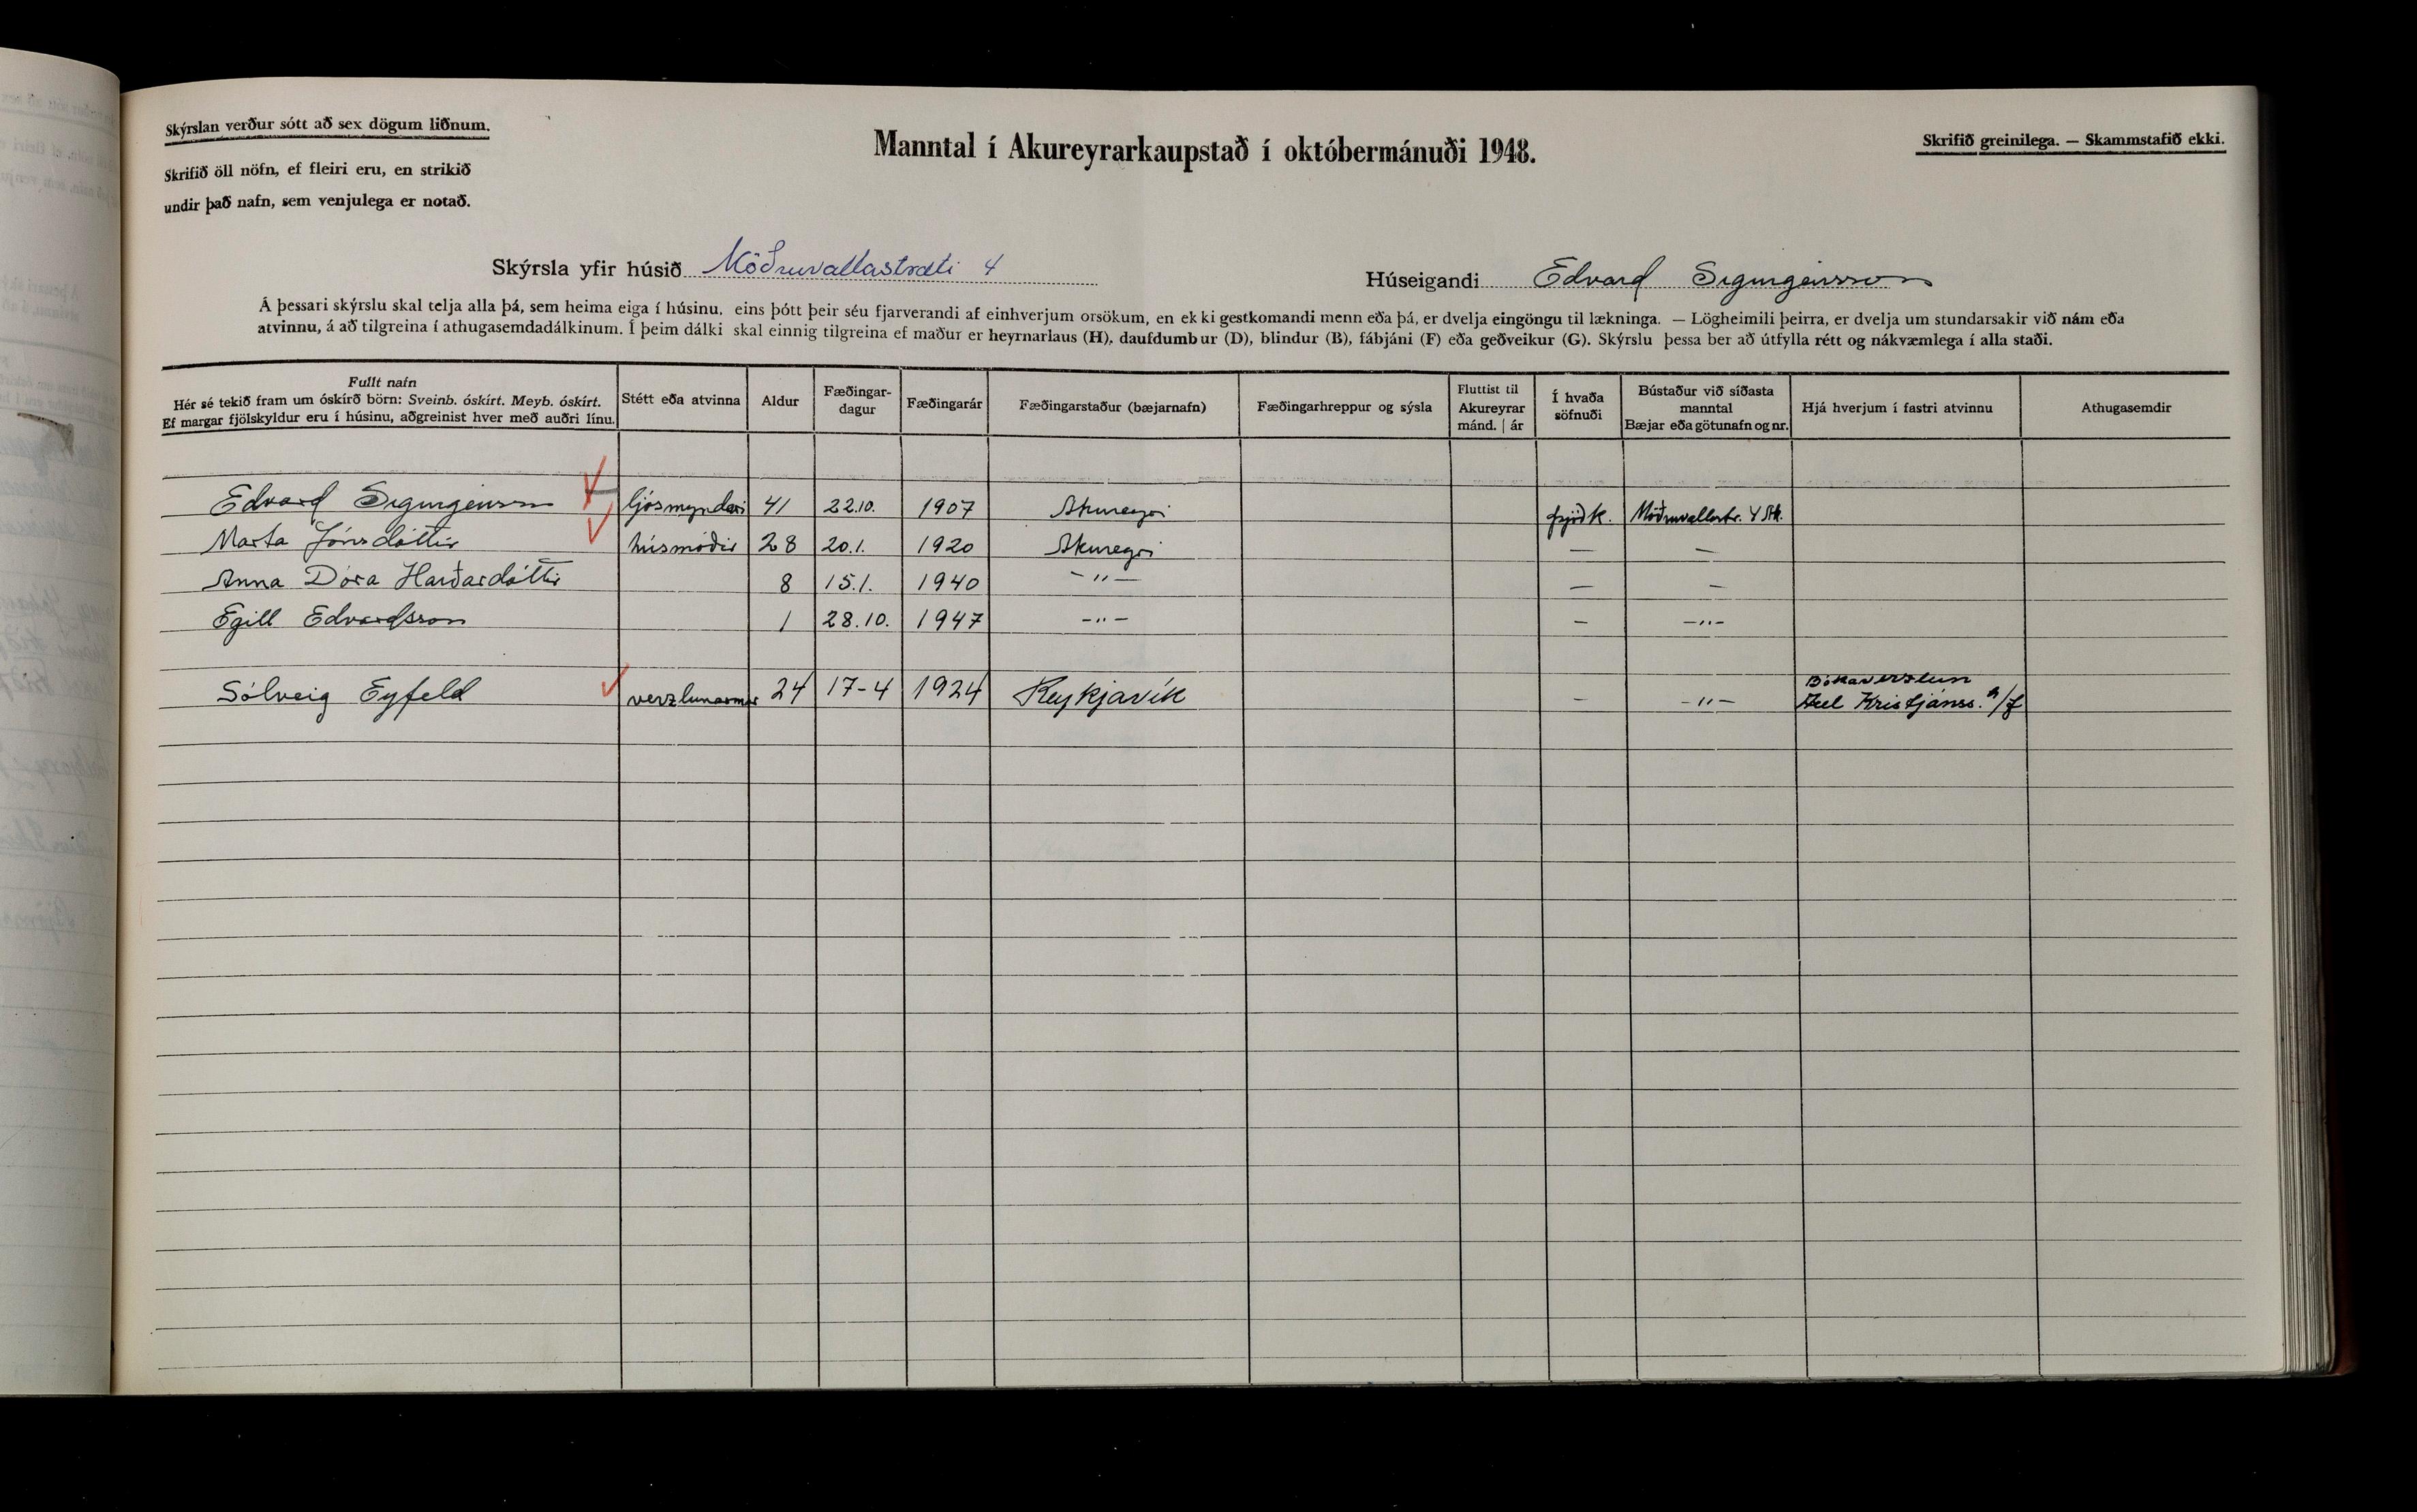 Skýrslan verður sótt að sex dögum liðnum.
Skrifið öll nöfn, ef fleiri eru, en strikið
undir það nafn, sem venjulega er notað.
Manntal í Akureyrarkaupstað í októbermánuði 1948.
Skrifið greinilega. — Skammstafið ekki.
Skýrsla yfir húsið Möðruvallastræti 4
Húseigandi Edvard Sigurgeirsson
Á þessari skýrslu skal telja alla þá, sem heima eiga í húsinu, eins þótt þeir séu fjarverandi af einhverjum orsökum, en ekki gestkomandi menn eða þá, er dvelja eingöngu til lækninga. — Lögheimili þeirra, er dvelja um stundarsakir við nám eða
atvinnu, á að tilgreina í athugasemdadálkinum. Í þeim dálki skal einnig tilgreina ef maður er heyrnarlaus (H), daufdumbur (D), blindur (B), fábjáni (F) eða geðveikur (G). Skýrslu þessa ber að útfylla rétt og nákvæmlega í alla staði.
Fullt nafn
Hér sé tekið fram um óskírð börn: Sveinb. óskírt. Meyb. óskírt.
Ef margar fjölskyldur eru í húsinu, aðgreinist hver með auðri línu.
Stétt eða atvinna
Aldur
Fæðingar-
dagur
Fæðingarár
Fæðingarstaður (bæjarnafn)
Fæðingarhreppur og sýsla
Fluttist til
Akureyrar
mánd. | ár
Í hvaða
söfnuði
Bústaður við síðasta
manntal
Bæjar eða götunafn og nr.
Hjá hverjum í fastri atvinnu
Athugasemdir
Edvard Sigurgeirsson ljósmyndari 41 22.10. 1907 Akureyri þjóðk. Möðruvallastr. 4 Ak.
Marta Jónsdóttir húsmóðir 28 20.1. 1920 Akureyri — —
Anna Dóra Harðardóttir 8 15.1. 1940 -"- — —
Egill Edvardsson 1 28.10. 1947 -"- — -"-
Sólveig Eyfeld verzlunarmær 24 17-4 1924 Reykjavík — -"- Bókaverzlun
Axel Kristjánss. h/f